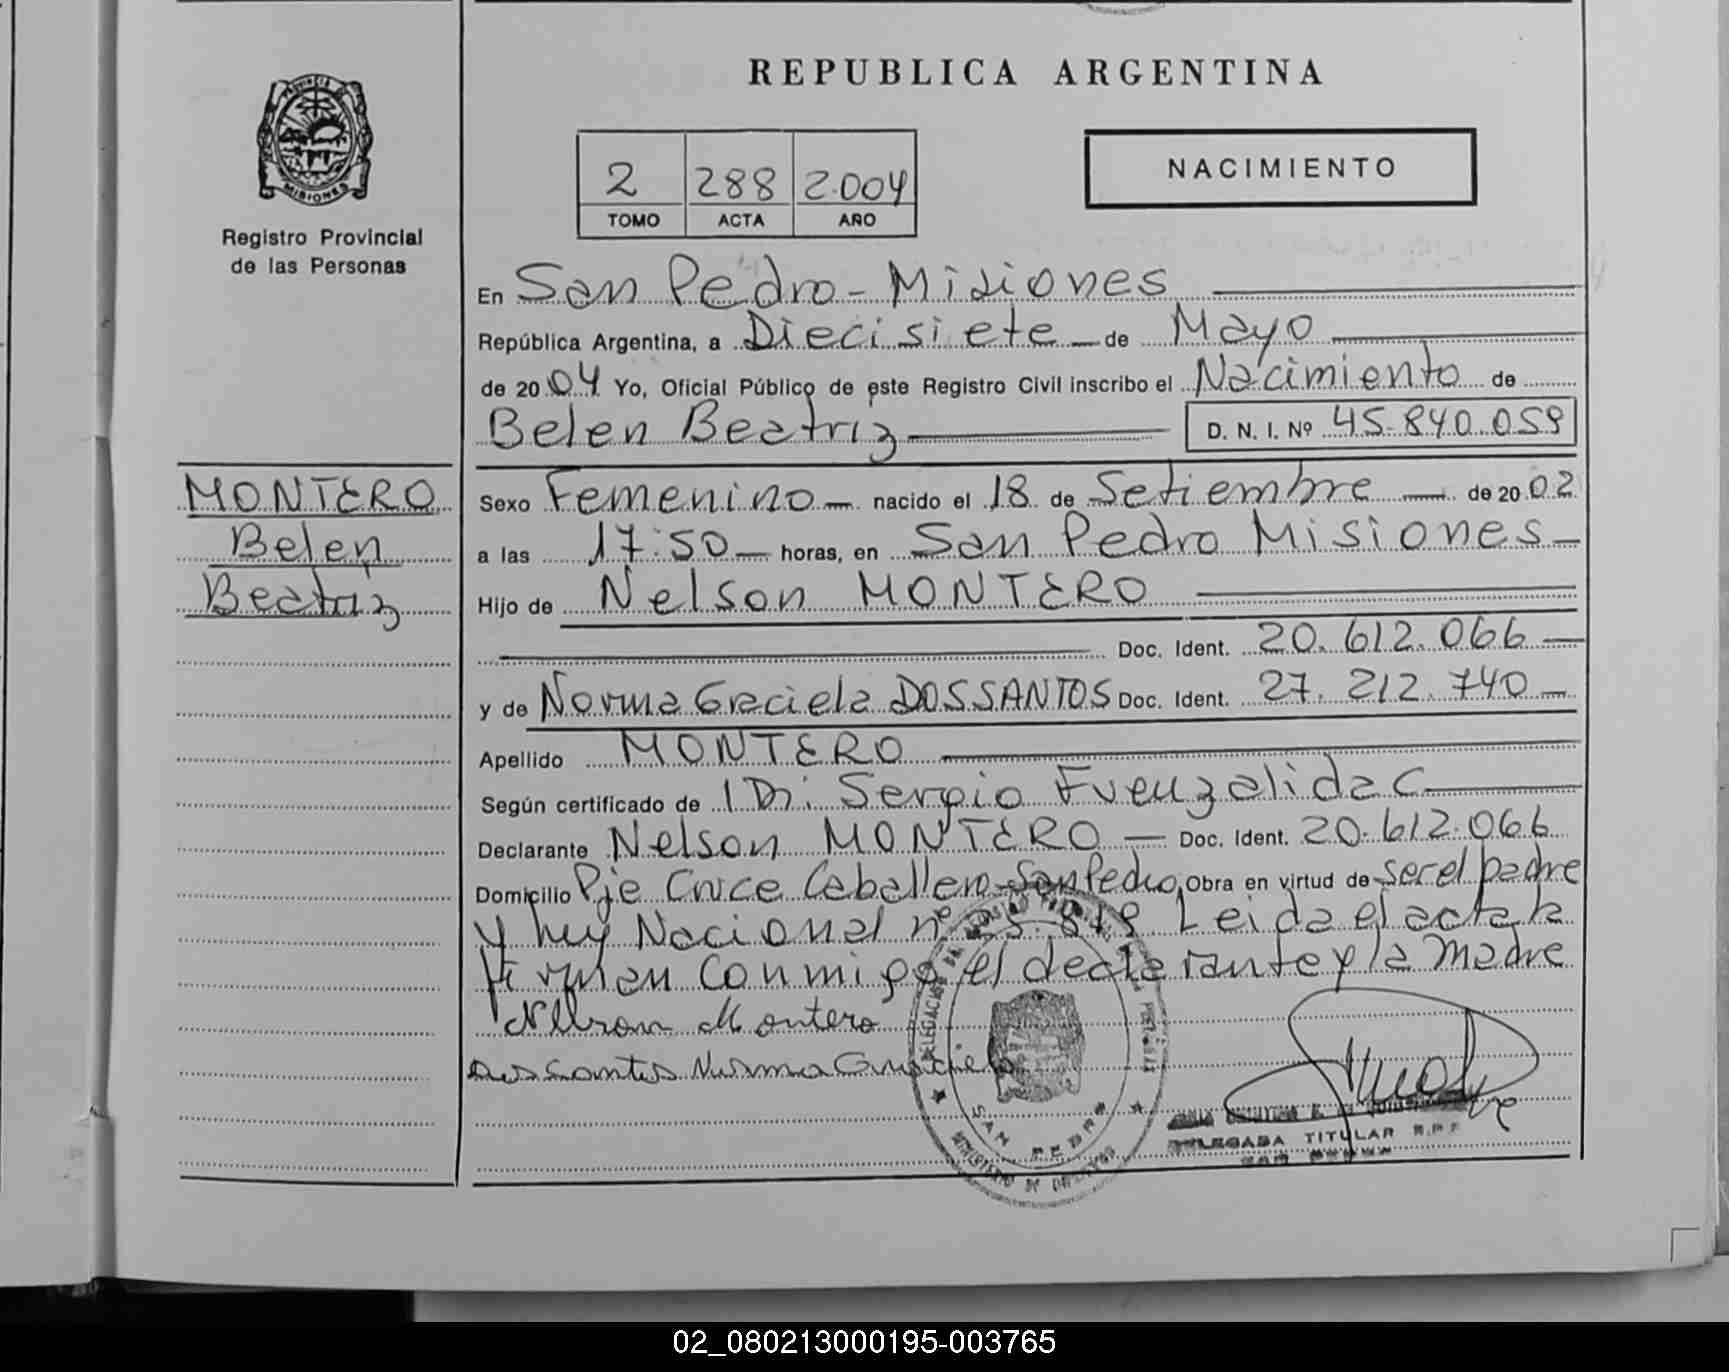 REPUBLICA ARGENTINA
PROVINCIA DE
MISIONES
Registro Provincial
de las Personas
2 288 2.004
TOMO ACTA AÑO
NACIMIENTO
En San Pedro - Misiones
República Argentina, a Diecisiete de Mayo
de 20 04 Yo, Oficial Público de este Registro Civil inscribo el Nacimiento de
Belen Beatriz D. N. I. Nº 45.840.059
MONTERO
Belen
Beatriz
Sexo Femenino nacido el 18 de Setiembre de 20 02
a las 17:50 horas, en San Pedro Misiones
Hijo de Nelson MONTERO
Doc. Ident. 20.612.066
y de Norma Graciela DOS SANTOS Doc. Ident. 27.212.740
Apellido MONTERO
Según certificado de Dr. Sergio Fuenzalida C.
Declarante Nelson MONTERO Doc. Ident. 20.612.066
Domicilio Pje Cruce Caballero - San Pedro Obra en virtud de ser el padre
y ley Nacional nº 25.819 Leida el acta la
firman conmigo el declarante y la madre
Nelson Montero
Dos Santos Norma Graciela
SAN PEDRO
DELEGADA TITULAR R.P.P.
SAN PEDRO
02_080213000195-003765